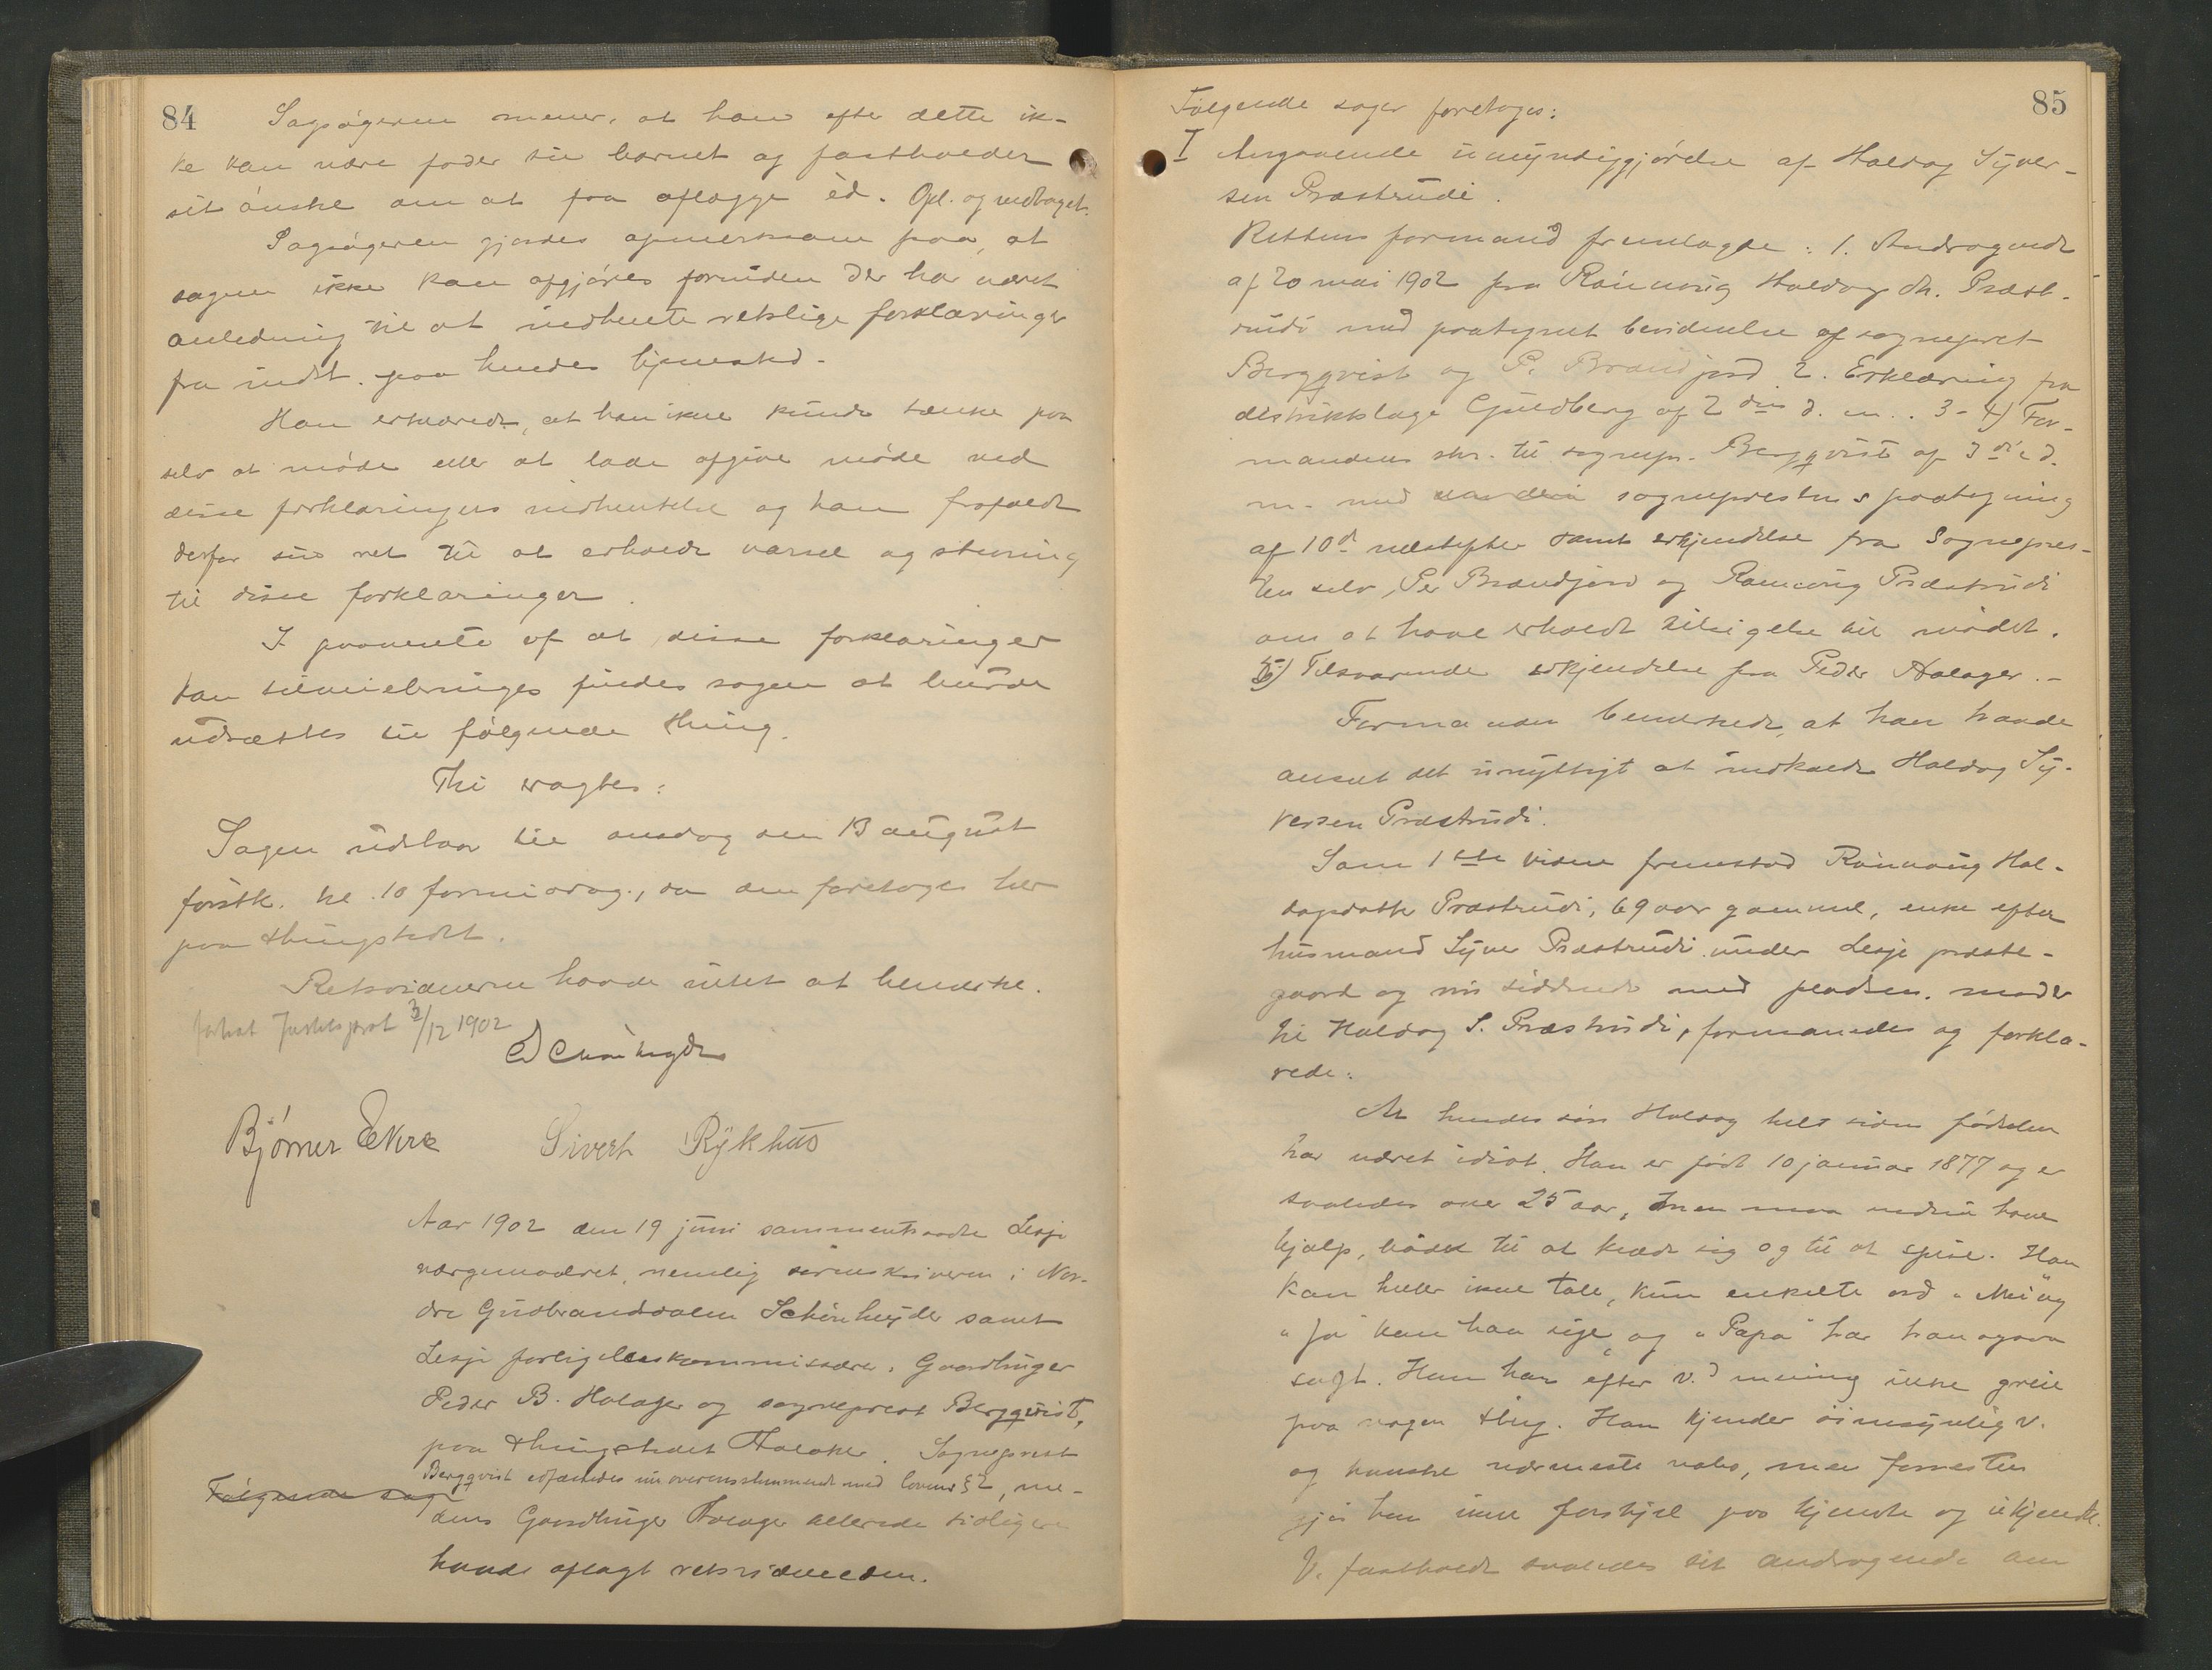 84
Sagsøgeren mener, at han efter dette ik-
ke kan være fader til barnet og fastholder
sit ønske om at faa aflægge ed. Opl. og vedtaget.
Sagsøgeren gjordes opmerksom paa, at
sagen ikke kan afgjøres foruden der har været
anledning til at indhente retslige forklaringer
fra indst. paa hendes hjemsted.
Han erklærede, at han ikke kunde tænke paa
selv at møde eller at lade afgive møde ved
disse forklaringers indhentelse og han frafaldt
derfor sin ret til at erholde varsel og stevning
til disse forklaringer.
I paavente af at disse forklaringer
kan tilveiebringes findes sagen at burde
udsættes til følgende thing.
Thi vagtes:
Sagen udstaar til onsdag den 13 august
førstk. kl. 10 formiddag, da den foretages her
paa thingstedet.
Retsvidnerne havde intet at bemerke.
Justitsprot 3/12 1902
Schönheyder
Bjørner Ekre Sivert Rykhus
Aar 1902 den 19 juni sammentraadte Lesje
værgemaadret, nemlig sorenskriveren i Nor-
dre Gudbrandsdalen Schönheyder samt
Lesje forligelseskommissærer, Gaardbruger
Peder B. Holager og sogneprest Bergqvist,
paa thingstedet Holaker. Sogneprest
Bergqvist edfæstedes nu overensstemmende med lovens § 2, me-
Følgende sag
dens Gaardbruger Holager allerede tidligere
havde aflagt retsvidneeden.
85
Følgende sager foretoges:
I Angaaende umyndiggjørelse af Haldog Syver-
sen Præstrudi.
Rettens formand fremlagde: 1. Andragende
af 20 mai 1902 fra Rönnoug Haldogsdt. Præst-
rudi med paategnet bevidnelse af sogneprest
Bergqvist og P. Brandjord 2. Erklæring fra
distriktslæge Guldberg af 2den d. m.. 3-4) For-
mandens skr. til sognepr. Bergqvist af 3die d.
m. med sogneprestens paategning
af 10de næstefter samt erkjendelse fra Sognepres-
ten selv, Per Brandjord og Rønnoug Præstrudi
om at have erholdt tilsigelse til mødet.
5) Tilsvarende erkjendelse fra Peder Holager.-
Formanden bemerkede, at han havde
anseet det unyttigt at indkalde Haldog Sy-
versen Præstrudi.
Som 1ste vidne fremstod Rønnoug Hal-
dogsdatter Præstrudi, 69 aar gammel, enke efter
husmand Syver Præstrudi under Lesje præste-
gaard og nu siddende med pladsen, moder
til Haldog S. Præstrudi, formanedes og forkla-
rede:
At hendes søn Haldog helt siden fødselen
har været idiot. Han er født 10 januar 1877 og er
saaledes over 25 aar, men maa endnu have
hjælp, baade til at klæde sig og til at spise. Han
kan heller ikke tale, kun enkelte ord „Mei" og
„Ja" kan han sige, og „Papa" har han ogsaa
sagt. Han har efter v.s mening ikke greie
paa nogen thing. Han kjender øiensynlig v.
og kanske nærmeste nabo, men forresten
gjør han ikke forskjel paa kjendte og ukjendte.
V. fastholdt saaledes sit andragende om